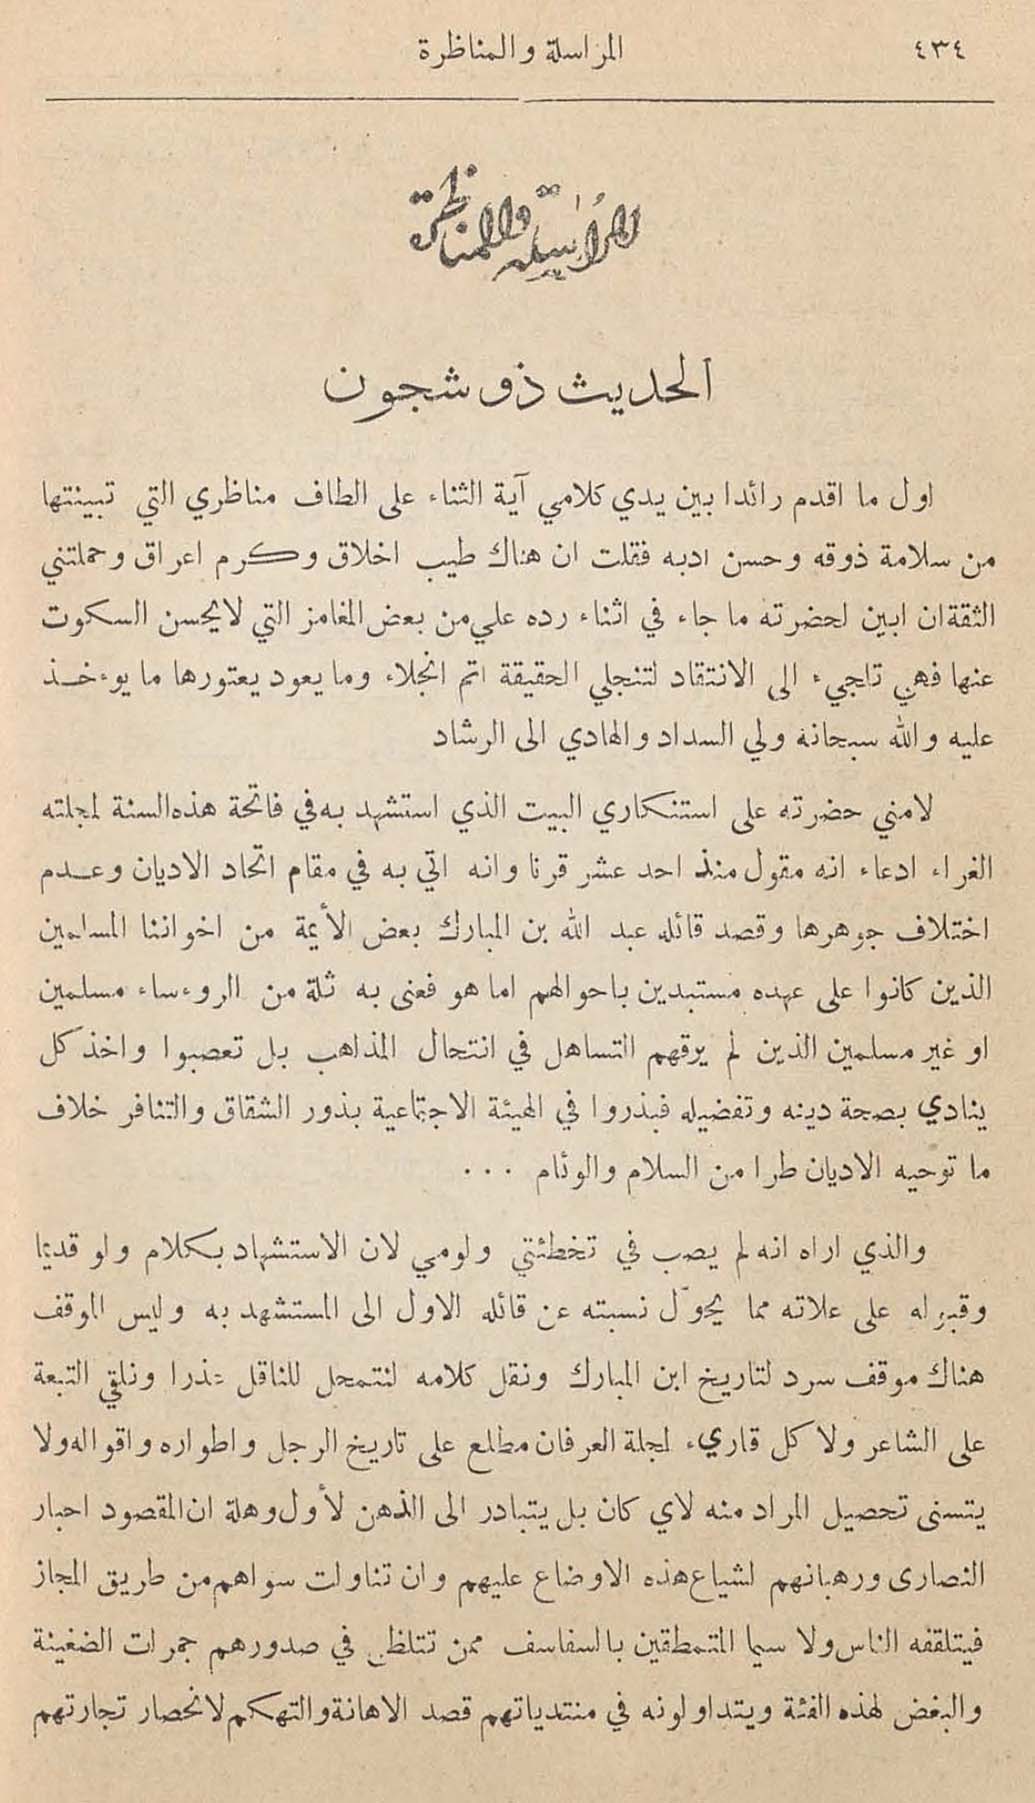 ٤٣٤
المراسلة والمناظرة
المراسلة والمناظرة
الحديث ذو شجون
اول ما اقدم رائدا بين يدي كلامي آية الثناء على الطاف مناظري التي تبينتها
من سلامة ذوقه وحسن ادبه فقلت ان هناك طيب اخلاق وكرم اعراق وحملتني
الثقة ان ابين لحضرته ما جاء في اثناء رده علي من بعض المغامز التي لا يحسن السكوت
عنها فهي تلجيء الى الانتقاد لتنجلي الحقيقة اتم انجلاء وما يعود يعتورها ما يوءخذ
عليه والله سبحانه ولي السداد والهادي الى الرشاد
لامني حضرته على استنكاري البيت الذي استشهد به في فاتحة هذه السنة لمجلته
الغراء ادعاء انه مقول منذ احد عشر قرنا وانه اتي به في مقام اتحاد الاديان وعدم
اختلاف جوهرها وقصد قائله عبد الله بن المبارك بعض الأيمة من اخواننا المسلمين
الذين كانوا على عهده مستبدين باحوالهم اما هو فعنى به ثلة من الروءساء مسلمين
او غير مسلمين الذين لم يرقهم التساهل في انتحال المذاهب بل تعصبوا واخذ كل
ينادي بصحة دينه وتفضيله فبذروا في الهيئة الاجتماعية بذور الشقاق والتنافر خلاف
ما توحيه الاديان طرا من السلام والوئام . . .
والذي اراه انه لم يصب في تخطئتي ولومي لان الاستشهاد بكلام ولو قديما
وقبوله على علاته مما يحوّل نسبته عن قائله الاول الى المستشهد به وليس الموقف
هناك موقف سرد لتاريخ ابن المبارك ونقل كلامه لنتمحل للناقل عذرا ونلقي التبعة
على الشاعر ولا كل قاريء لمجلة العرفان مطلع على تاريخ الرجل واطواره واقواله ولا
يتسنى تحصيل المراد منه لاي كان بل يتبادر الى الذهن لأول وهلة ان المقصود احبار
النصارى ورهبانهم لشياع هذه الاوضاع عليهم وان تناولت سواهم من طريق المجاز
فيتلقفه الناس ولا سيما المتمطقين بالسفاسف ممن تتلظى في صدورهم جمرات الضغينة
والبغض لهذه الفئة ويتداولونه في منتدياتهم قصد الاهانة والتهكم لانحصار تجارتهم